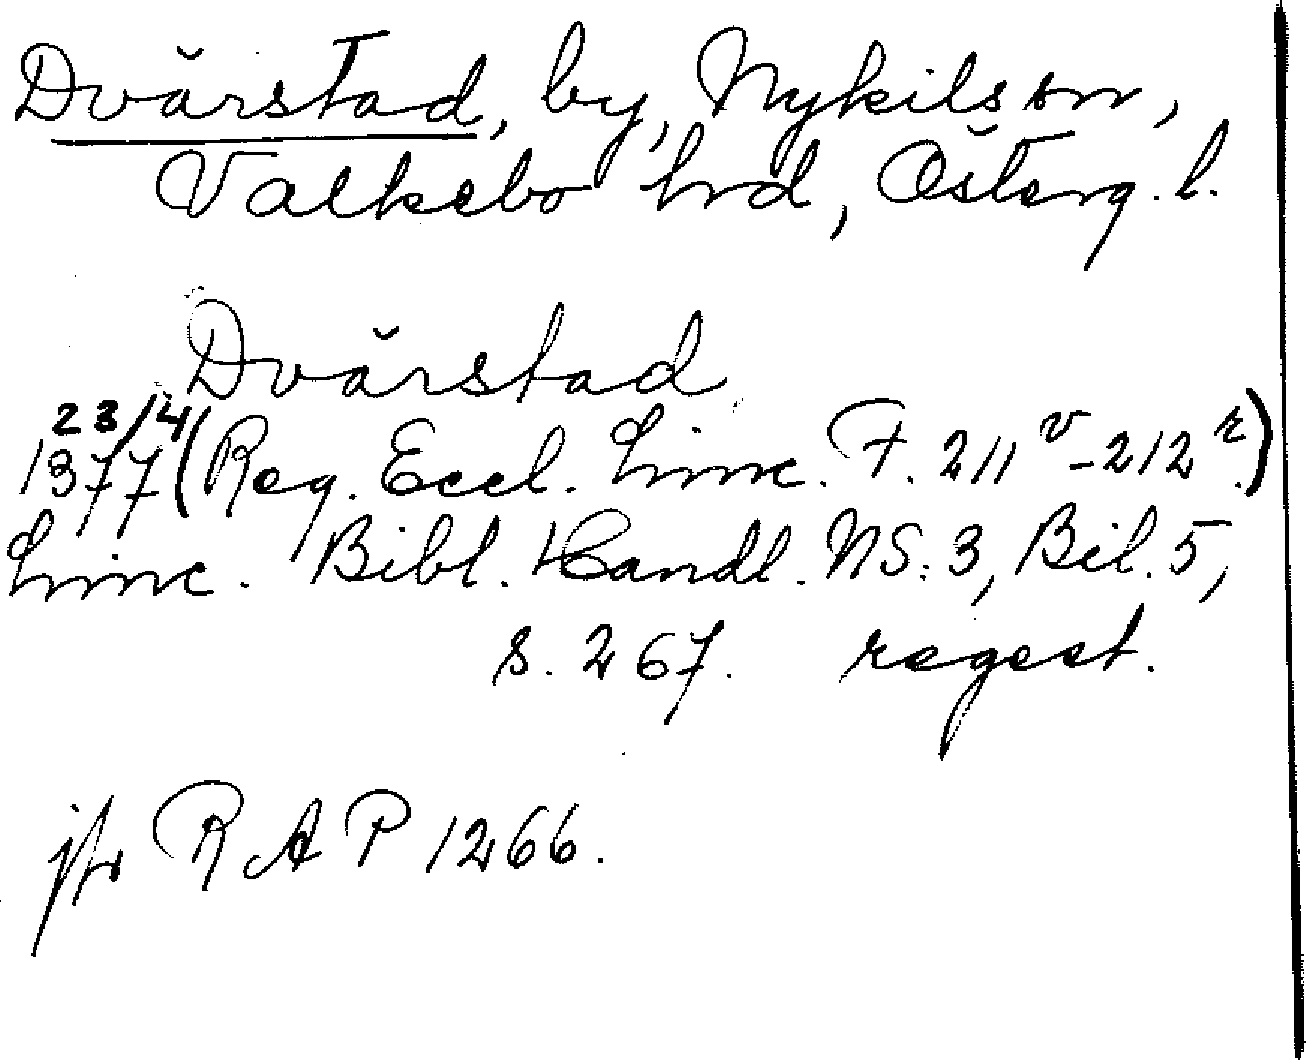 Dvärstad, by, Nykils sn,
Valkebo hrd, Österg. l.
Dvärstad
23/4
1377 (Reg. Eccl. Linc. F. 211 v - 212 r.)
Linc. Bibl. Handl. NS: 3, Bil. 5,
s. 267. regest.
jfr RAP 1266.